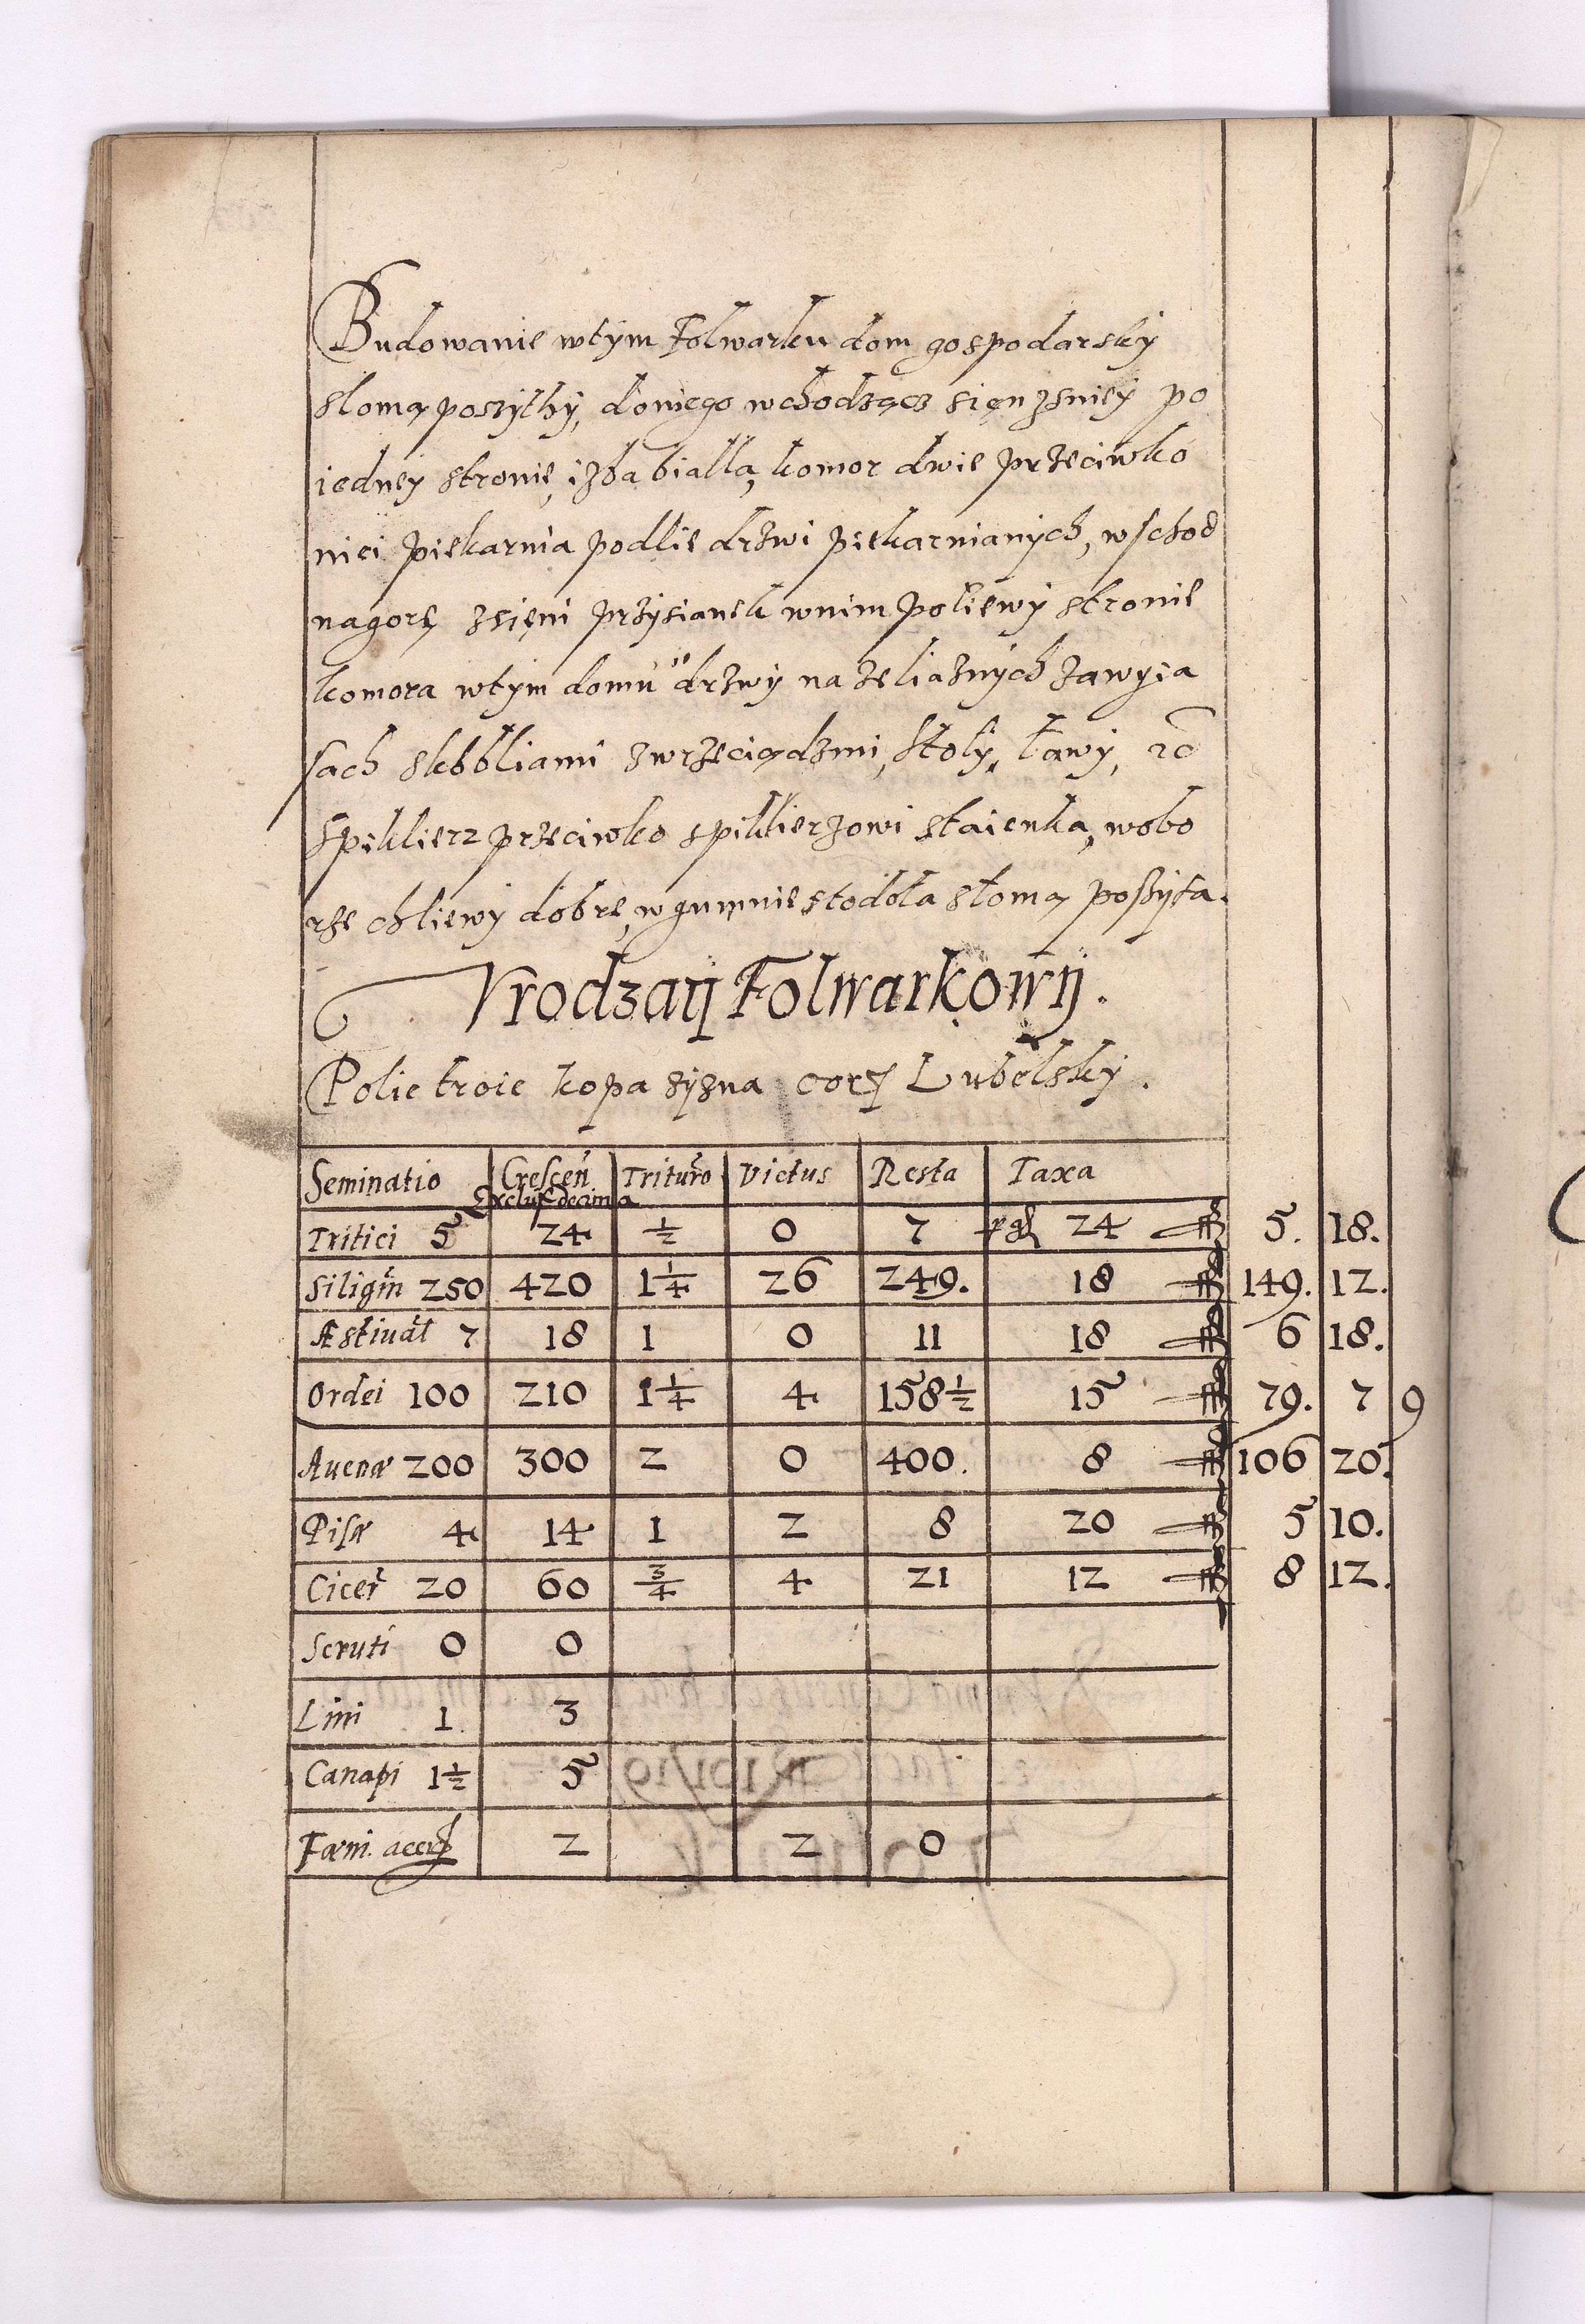 Budowanie wtym Folwarku dom gospodarsky
słomą poszythy, doniego wchodzącz sięn zsniey po
iedney stronie, izba białła, komor dwie przeciwko
niei piekarnia podlie drzwi piekarnianych, wschod
nagorę zsięni przysianek wnim poliewy stronie
komora wtym domu drzwy na zeliaznych zawyia
sach skbbliami zwrzeciądzmi, stoly, ławy, ec
Spiklierz przeciwko spiklierzowi staienka, wobo
rze chliewy dobre, wgumnie stodoła słomą poszyta.
Vrodzaÿ Folwarkowÿ.
Polie troie kopa zyzna corz Lubelsky.
Seminatio Crescen Trituro Victus Resta Taxa
Exclus decima
Tritici 5 24 ½ 0 7 24 5. 18.
Siligin 250 420 1¼ 26 249. 18 149. 12.
Æstiual 7 18 1 0 11 18 6 18.
Ordei 100 210 1¼ 4 158½ 15 79. 7 9
Auenæ 200 300 2 0 400. 8 106 20.
Pisæ 4 14 1 2 8 20 5 10.
Cicer 20 60 ¾ 4 21 12 8 12.
Scruti 0 0
Lini 1. 3
Canapi 1½ 5
Fæni. acer 2 2 0